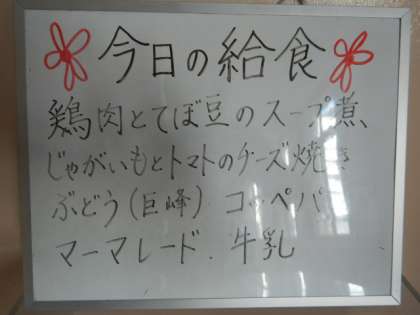 今日の給食
鶏肉とてぼ豆のスープ煮
じゃがいもとトマトのチーズ焼き
ぶどう(巨峰) コッペパ
マーマレード. 牛乳